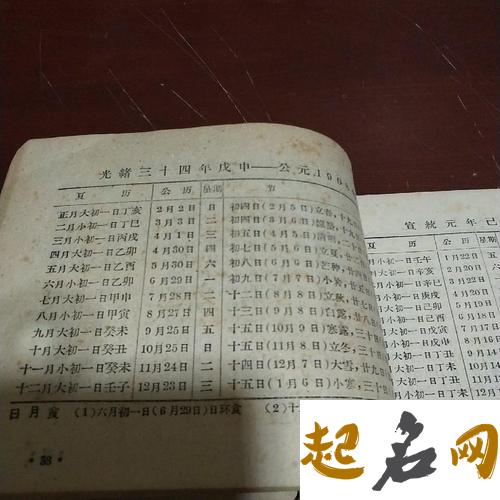 光緒三十四年戊申——公元1908
夏 历 公 历 星期 节
正月大初一日丁亥 2月2日 日 初四(2月5日)立春,十九
二月小初一日丁巳 3月3日 二 初四(3月6日)惊蟄,十九
三月小初一日丙戌 4月1日 三 初五(4月5日)清明,二十
四月大初一日乙卯 4月30日 四 初七(5月6日)立夏,
五月大初一日乙酉 5月30日 六 初八(6月6日)芒种,
六月小初一日乙卯 6月29日 一 初九(7月7日)小暑,
七月大初一日甲申 7月28日 二 十二日(8月8日)立秋,廿七
八月小初一日甲寅 8月27日 四 十三日(9月8日)白露,
九月大初一日癸未 9月25日 五 十五日(10月9日)寒露,
十月大初一日癸丑 10月25日 日 十五日(11月8日)立冬,三十
十一月小初一日癸未 11月24日 二 十四日(12月7日)大雪,廿九
十二月大初一日壬子 12月23日 三 十五日(1月6日)小寒,三十
日月食 (1)六月初一日(6月29日)日环食 (2)十
·38
宣統元年己
夏 历 公历 星期
初一日壬午 1月22日 五
初一日辛亥 2月20日
月小初一日辛巳 3月
初一日庚戌 4月20日
小初一日己卯 5月19
初一日己酉 6月18
大初一日戊寅 7月17
小初一日戊申 8月16
初一日丁丑 9月14
初一日丁未 10月14
初一日丁丑 11月13
初一日丁未 12月13
起名网